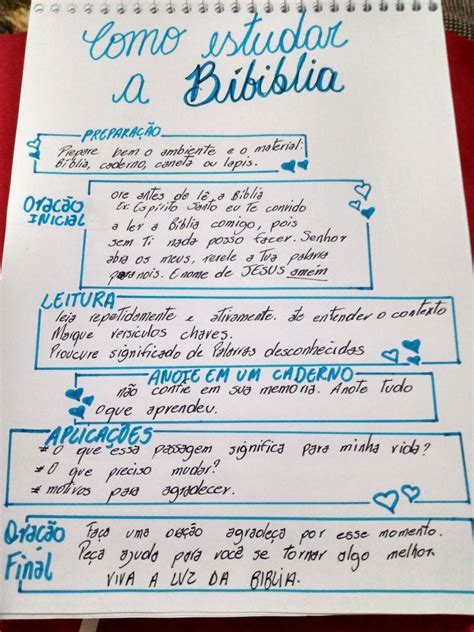 Como estudar
a Bibiblia
PREPARAÇÃO
Prepare bem o ambiente e o material:
Biblia, caderno, caneta ou lapis.
Oração
INICIAL
ore antes de lê a Biblia
Ex: Espírito Santo eu te convido
a ler a Biblia comigo, pois
sem Ti nada posso facer. Senhor
abra os meus, revele a Tua palavra
para nois. E nome de JESUS amém
LEITURA
leia repetidamente e ativamente. ate entender o contexto
Marque versiculos chaves.
Proucure significado de Palavras desconhecidas
ANOTE EM UM CADERNO
não confie em sua memoria. Anote Tudo
o que aprendeu.
APLICAÇÕES
# O que essa passagem significa para minha vida?
# O que preciso mudar?
# motivos para agradecer.
Oração
Final
Faça uma oração agradeça por esse momento.
Peça ajuda para você se tornar algo melhor.
VIVA A LUZ DA BIBLIA.